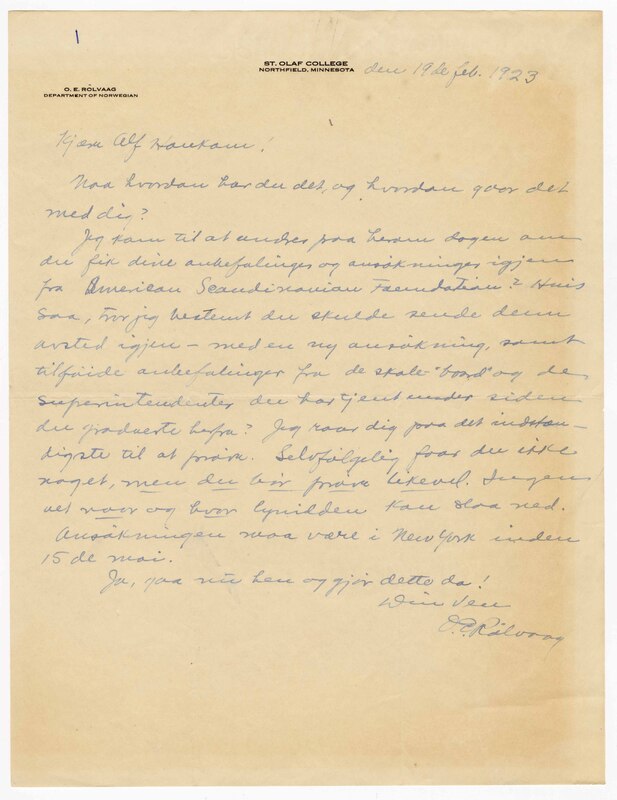 ST. OLAF COLLEGE
NORTHFIELD, MINNESOTA
den 19de feb. 1923
O. E. RÖLVAAG
DEPARTMENT OF NORWEGIAN
Kjære Alf Houkom!
Naa hvordan har du det, og hvordan gaar det
med dig?
Jeg kom til at undres paa herom dagen om
du fik dine anbefalinger og ansökninger igjen
fra American Scandinavian Foundation? Hvis
saa, tror jeg bestemt du skulde sende dem
avsted igjen – med en ny ansökning, samt
tilföide anbefalinger fra de skole-"board" og de
superintendenter du har tjent under siden
du graduerte herfra? Jeg raar dig paa det indstæn-
digste til at pröve. Selvfölgelig faar du ikke
noget, men du bör pröve likevel. Ingen
vet naar og hvor lynilden kan slaa ned.
Ansökningen maa være i New York inden
15de mai.
Ja, gaa nu hen og gjör dette da!
Din ven
O. E. Rölvaag